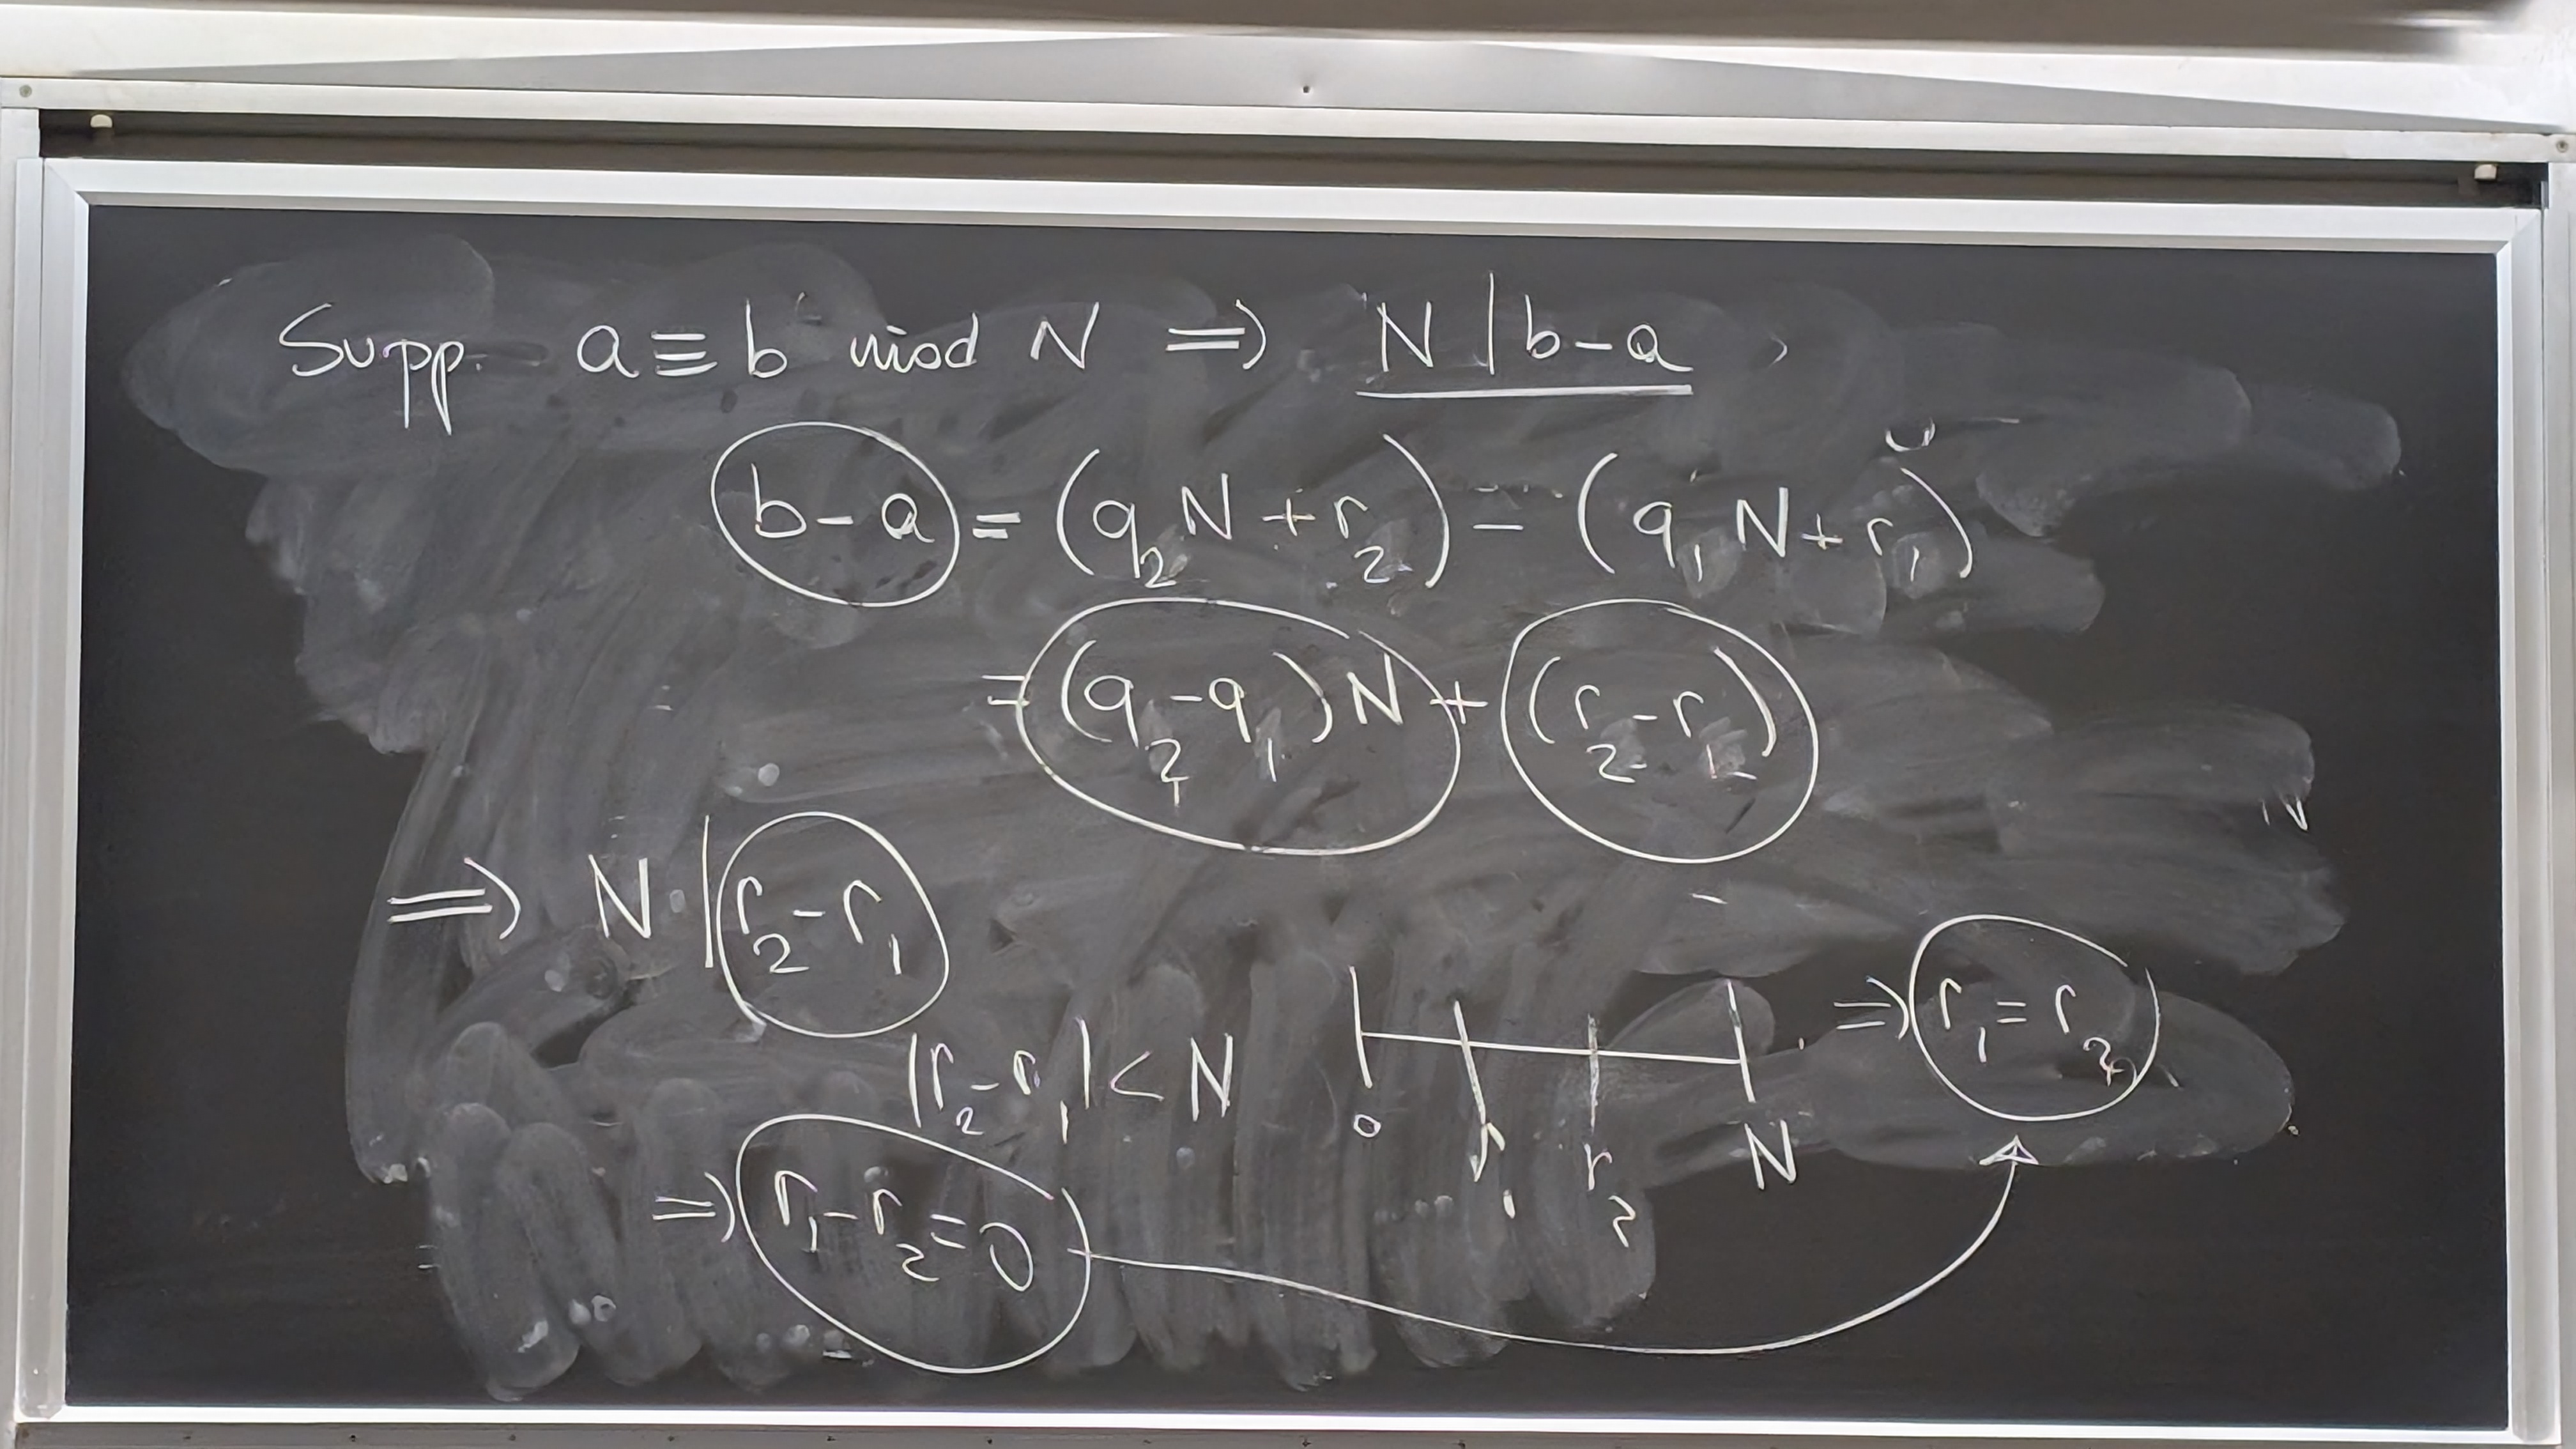 Supp. a ≡ b mod N ⇒ N | b-a
b-a = (q₂N + r₂) - (q₁N + r₁)
= (q₂-q₁)N + (r₂-r₁)
⇒ N | r₂-r₁
|r₂-r₁| < N 0 r₁ r₂ N ⇒ r₁ = r₂
⇒ r₁-r₂ = 0